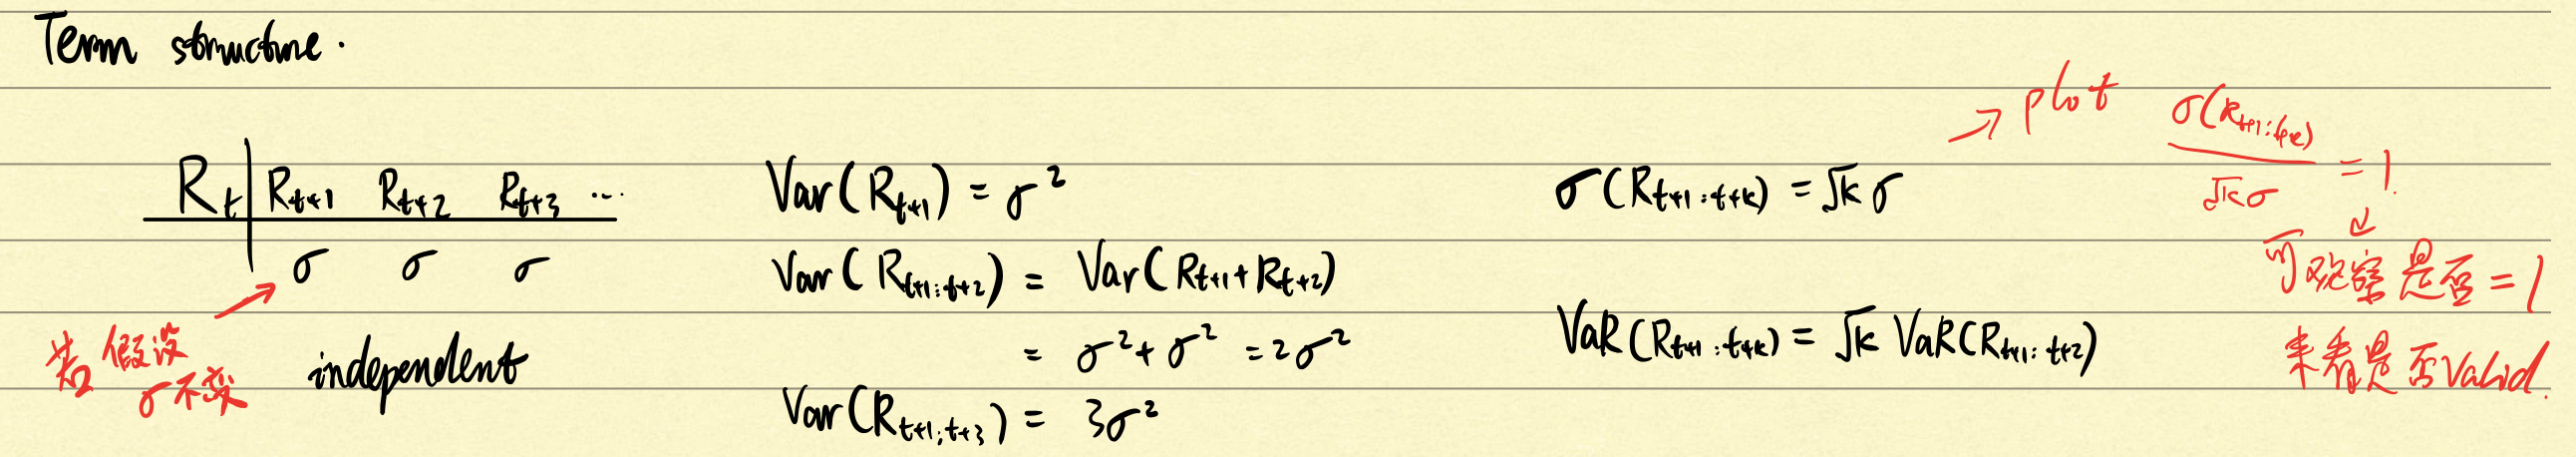 Term structure.
R_t | R_{t+1} R_{t+2} R_{t+3} ...
σ σ σ
若假设
σ不变
independent
Var(R_{t+1}) = σ²
Var(R_{t+1:t+2}) = Var(R_{t+1}+R_{t+2})
= σ²+σ² = 2σ²
Var(R_{t+1:t+3}) = 3σ²
σ(R_{t+1:t+k}) = √k σ
→ plot σ(R_{t+1:t+k}) / √kσ = 1
可观察是否=1
来看是否Valid.
VaR(R_{t+1:t+k}) = √k VaR(R_{t+1:t+2})